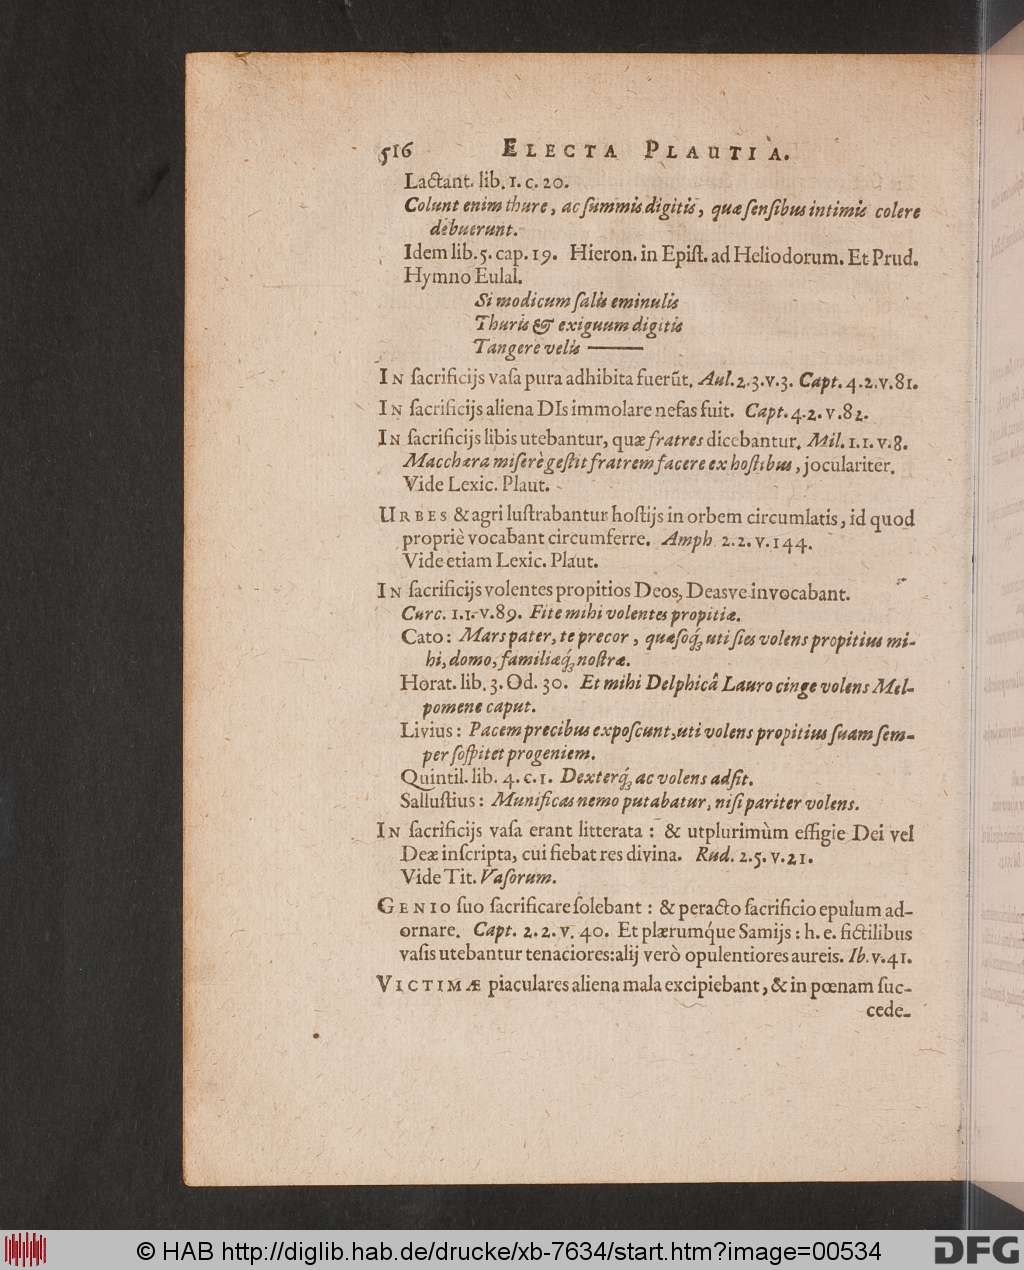 516 ELECTA PLAUTIA.
Lactant. lib. 1. c. 20.
Colunt enim thure, ac summis digitis, quæ sensibus intimis colere
debuerunt.
Idem lib. 5. cap. 19. Hieron. in Epist. ad Heliodorum. Et Prud.
Hymno Eulal.
Si modicum salis eminulis
Thuris & exiguum digitis
Tangere velis ———
IN sacrificijs vasa pura adhibita fuerūt. Aul. 2.3.v.3. Capt. 4.2.v.81.
IN sacrificijs aliena DIs immolare nefas fuit. Capt. 4.2.v.82.
IN sacrificijs libis utebantur, quæ fratres dicebantur. Mil. 1.1.v.8.
Macchæra miserè gestit fratrem facere ex hostibus, joculariter.
Vide Lexic. Plaut.
URBES & agri lustrabantur hostijs in orbem circumlatis, id quod
propriè vocabant circumferre. Amph. 2.2.v.144.
Vide etiam Lexic. Plaut.
IN sacrificijs volentes propitios Deos, Deasve invocabant.
Curc. 1.1.v.89. Fite mihi volentes propitiæ.
Cato: Mars pater, te precor, quæsoq́; uti sies volens propitius mi-
hi, domo, familiæq́; nostræ.
Horat. lib. 3. Od. 30. Et mihi Delphicâ Lauro cinge volens Mel-
pomene caput.
Livius: Pacem precibus exposcunt, uti volens propitius suam sem-
per sospitet progeniem.
Quintil. lib. 4. c. 1. Dexterq́; ac volens adsit.
Sallustius: Munificas nemo putabatur, nisi pariter volens.
IN sacrificijs vasa erant litterata: & utplurimùm effigie Dei vel
Deæ inscripta, cui fiebat res divina. Rud. 2.5.v.21.
Vide Tit. Vasorum.
GENIO suo sacrificare solebant: & peracto sacrificio epulum ad-
ornare. Capt. 2.2.v. 40. Et plærumq́ue Samijs: h. e. fictilibus
vasis utebantur tenaciores: alij verò opulentiores aureis. Ib. v.41.
VICTIMÆ piaculares aliena mala excipiebant, & in pœnam suc-
cede-
© HAB http://diglib.hab.de/drucke/xb-7634/start.htm?image=00534
DFG